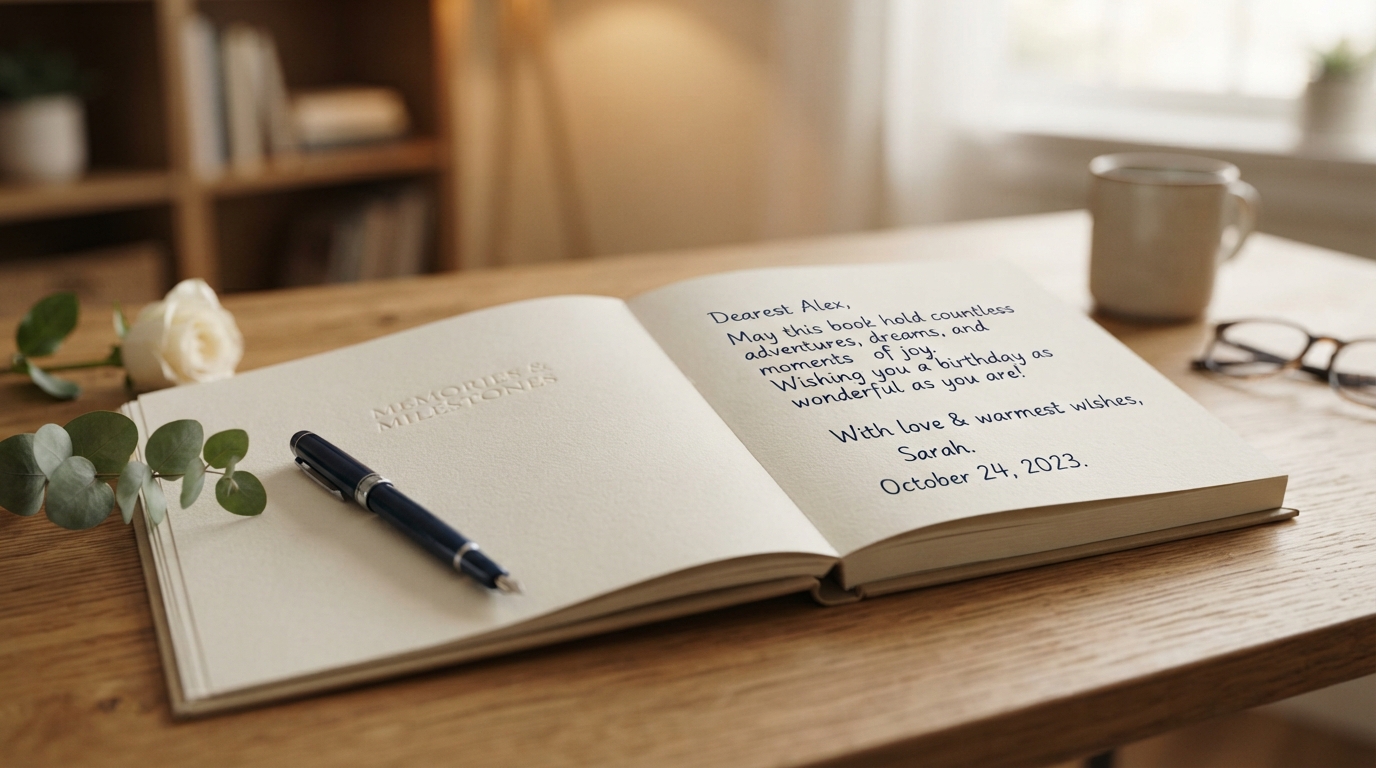 MEMORIES &
MILESTONES
Dearest Alex,
May this book hold countless
adventures, dreams, and
moments of joy.
Wishing you a birthday as
wonderful as you are!
With love & warmest wishes,
Sarah.
October 24, 2023.